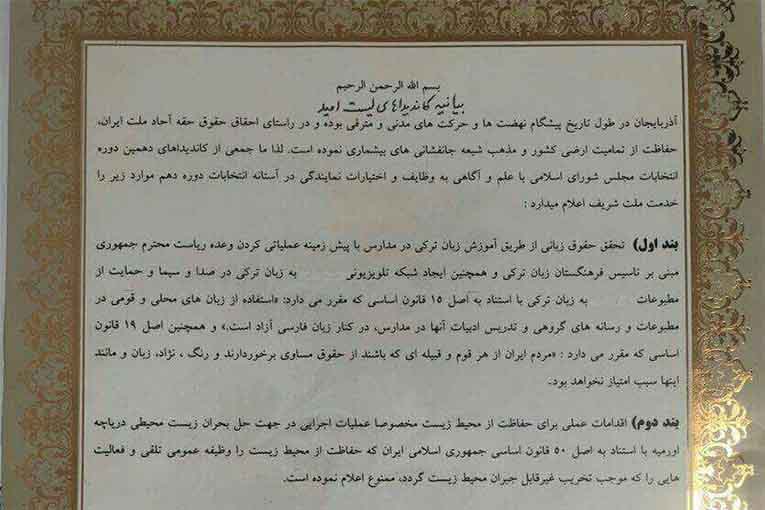 بسم الله الرحمن الرحیم
بیانیه کاندیداهای لیست امید
آذربایجان در طول تاریخ پیشگام نهضت ها و حرکت های مدنی و مترقی بوده و در راستای احقاق حقوق حقه آحاد ملت ایران،
حفاظت از تمامیت ارضی کشور و مذهب شیعه جانفشانی های بیشماری نموده است. لذا ما جمعی از کاندیداهای دهمین دوره
انتخابات مجلس شورای اسلامی با علم و آگاهی به وظایف و اختیارات نمایندگی در آستانه انتخابات دوره دهم موارد زیر را
خدمت ملت شریف اعلام میدارد :
بند اول) تحقق حقوق زبانی از طریق آموزش زبان ترکی در مدارس با پیش زمینه عملیاتی کردن وعده ریاست محترم جمهوری
مبنی بر تاسیس فرهنگستان زبان ترکی و همچنین ایجاد شبکه تلویزیونی به زبان ترکی در صدا و سیما و حمایت از
مطبوعات به زبان ترکی با استناد به اصل ۱۵ قانون اساسی که مقرر می دارد: «استفاده از زبان های محلی و قومی در
مطبوعات و رسانه های گروهی و تدریس ادبیات آنها در مدارس، در کنار زبان فارسی آزاد است.» و همچنین اصل ۱۹ قانون
اساسی که مقرر می دارد : «مردم ایران از هر قوم و قبیله ای که باشند از حقوق مساوی برخوردارند و رنگ ، نژاد، زبان و مانند
اینها سبب امتیاز نخواهد بود.
بند دوم) اقدامات عملی برای حفاظت از محیط زیست مخصوصا عملیات اجرایی در جهت حل بحران زیست محیطی دریاچه
اورمیه با استناد به اصل ۵۰ قانون اساسی جمهوری اسلامی ایران که حفاظت از محیط زیست را وظیفه عمومی تلقی و فعالیت
هایی را که موجب تخریب غیرقابل جبران محیط زیست گردد، ممنوع اعلام نموده است.